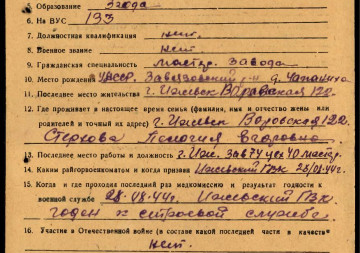 5. Образование 3 года
6. На ВУС 133
7. Должностная квалификация нет.
8. Военное звание нет
9. Гражданская специальность мастер завода
10. Место рождения УАССР. Завьяловский р-н д.
11. Последнее место жительства г. Ижевск 122.
12. Где проживает в настоящее время семья (фамилия, имя и отчество жены или
родителей и точный их адрес) г. Ижевск 122.
Пелагия Егоровна
13. Последнее место работы и должность г. Иж. зав 74 цех 40 мастер.
14. Каким райгорвоенкоматом и когда призван Ижевский ГВК 28/08.44г.
15. Когда и где проходил последний раз медкомиссию и результат годности к
военной службе 28.08.44г. Ижевский ГВК
годен к строевой службе.
16. Участие в Отечественной войне (в составе какой последней части и в качестве
нет.